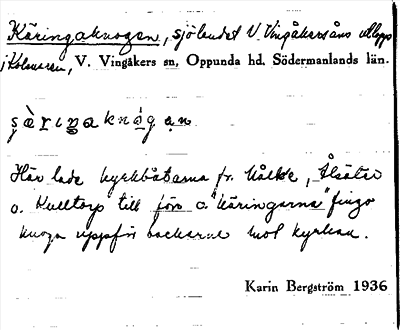 Käringaknogen, sjölandet V. Vingåkersåns utlopp
i Kolsnaren, V. Vingåkers sn, Oppunda hd. Södermanlands län.
Här lade kyrkbåtarna fr. 
o. Kulltorp till förr o. "käringarna" fingo
knoga uppför backarne mot kyrkan.
Karin Bergström 1936